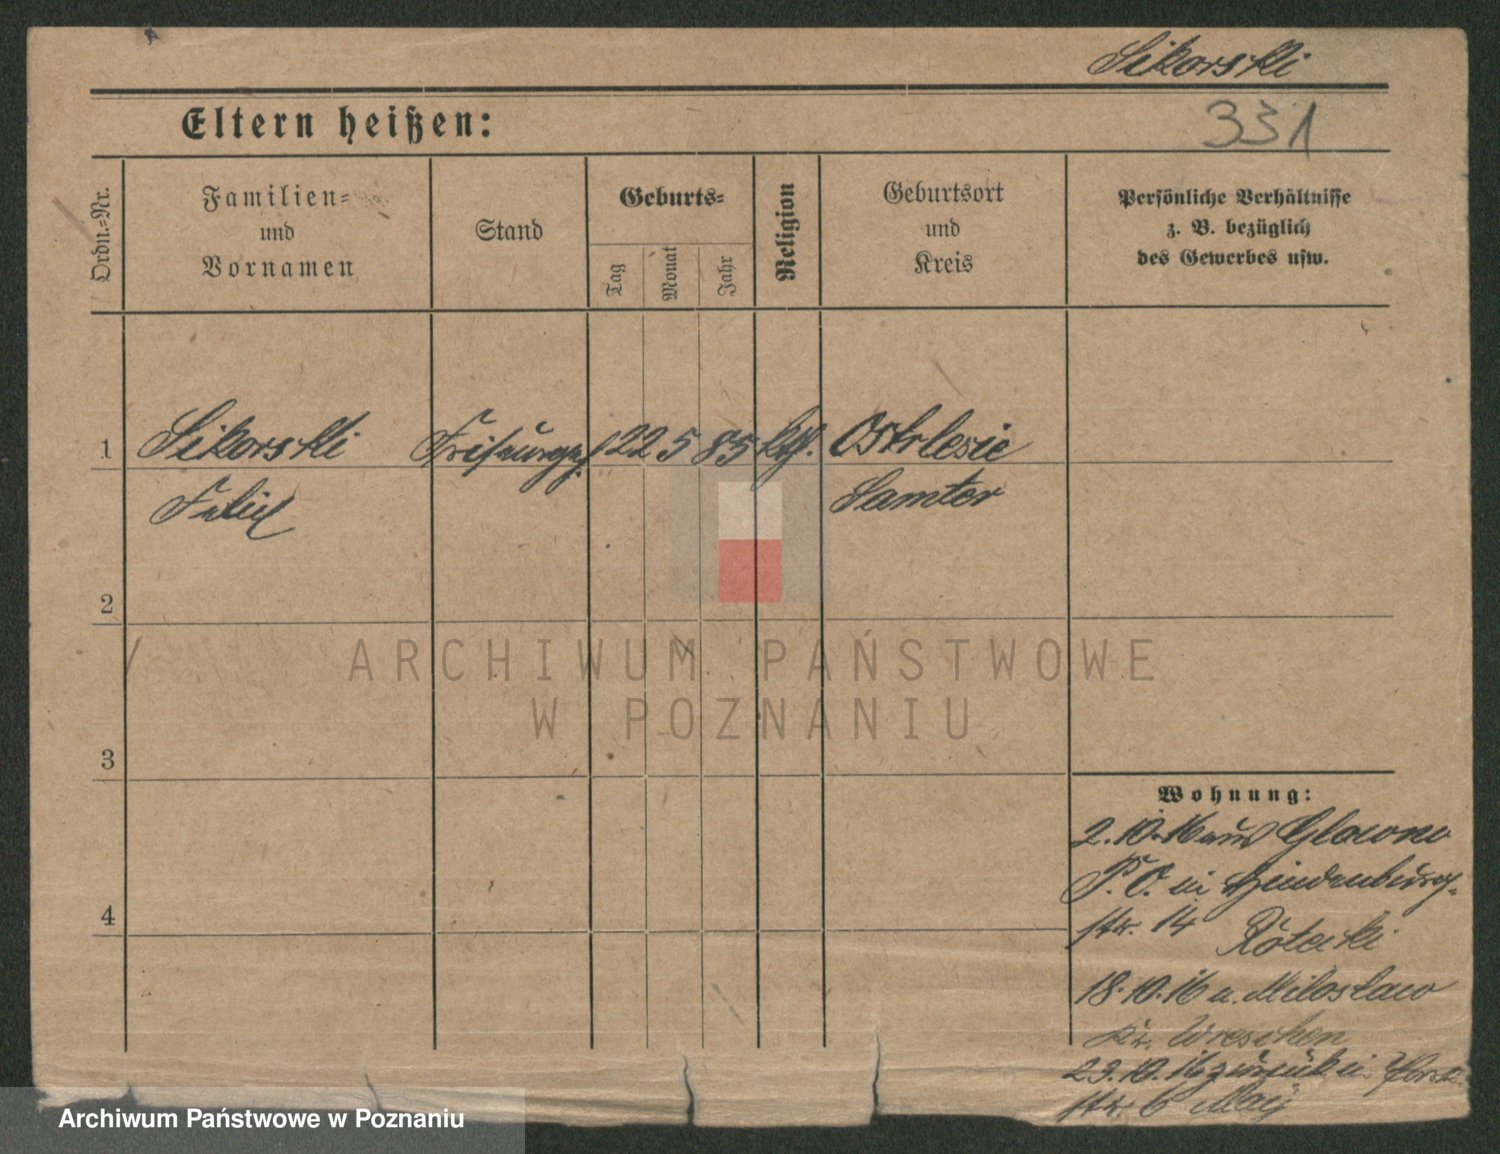 Sikorski
331
Eltern heißen:
Ordn.-Nr.
Familien-
und
Vornamen
Stand
Geburts-
Tag
Monat
Jahr
Religion
Geburtsort
und
Kreis
Persönliche Verhältnisse
z. B. bezüglich
des Gewerbes usw.
1
Sikorski 22 5 85 kth. Ostrlesie
Samter
2
3
4
Wohnung:
2.10.16 aus Glowno
P. O. in Hindenburg-
str. 14
18.10.16 n. Miloslaw
Kr. Wreschen
23.10.16 zurück in
str. 6
ARCHIWUM PAŃSTWOWE
W POZNANIU
Archiwum Państwowe w Poznaniu